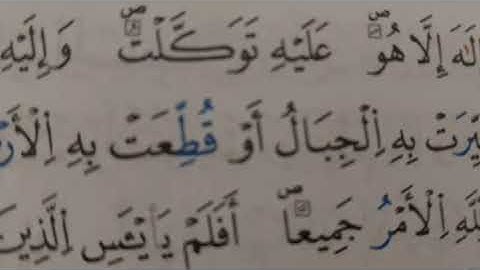 إِلَّا هُوَۖ عَلَيْهِ تَوَكَّلْتُۖ وَإِلَيْهِ
يِّرَتْ بِهِ اِ۬لْجِبَالُ أَوْ قُطِّعَتْ بِهِ اِ۬لْأَرْ
لَّهِ اِ۬لْأَمْرُ جَمِيعاًۖ أَفَلَمْ يَاْيْـَٔسِ اِ۬لَّذِينَ